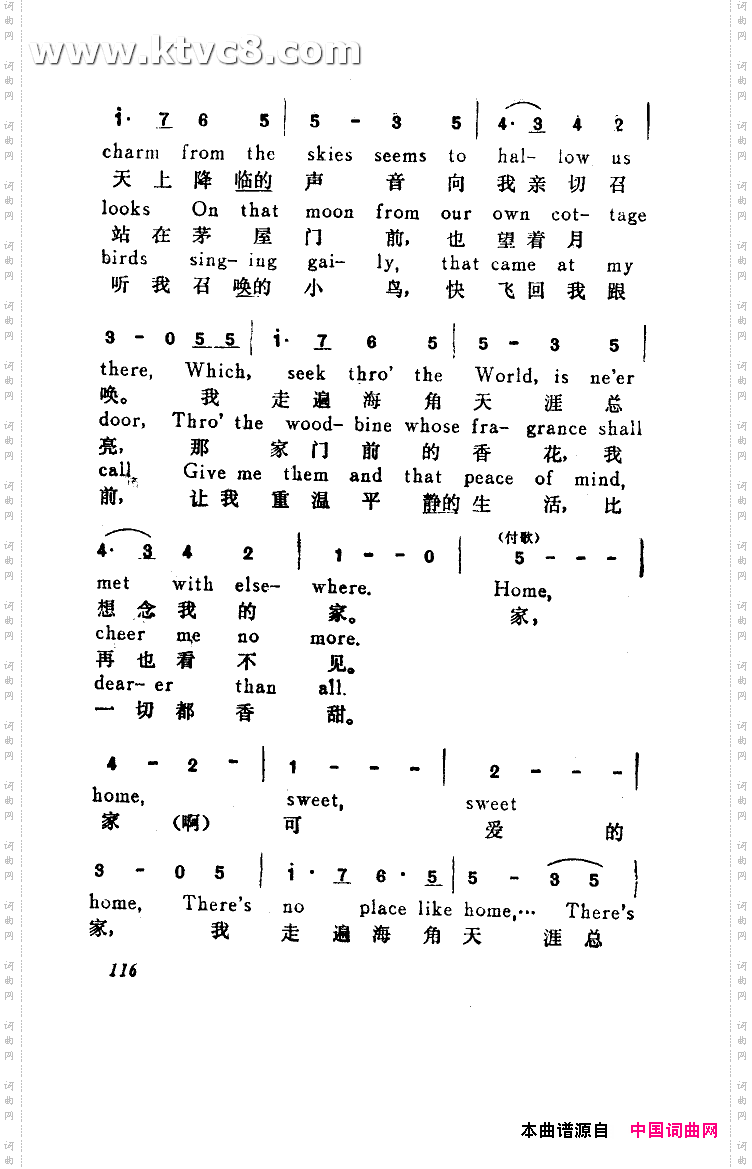 www.ktvc8.com
i· 7 6 5 | 5 - 3 5 | 4· 3 4 2 |
charm from the skies seems to hal- low us
天 上 降 临的 声 音 向 我 亲 切 召
looks On that moon from our own cot- tage
站 在 茅 屋 门 前, 也 望 着 月
birds sing- ing gai- ly, that came at my
听 我 召 唤的 小 鸟, 快 飞 回 我 跟
3 - 0 5 5 | i· 7 6 5 | 5 - 3 5 |
there, Which, seek thro' the World, is ne'er
唤。 我 走 遍 海 角 天 涯 总
door, Thro' the wood- bine whose fra- grance shall
亮, 那 家 门 前 的 香 花, 我
call, Give me them and that peace of mind,
前, 让 我 重 温 平 静的 生 活, 比
(付歌)
4· 3 4 2 | 1 - - 0 | 5 - - - |
met with else- where. Home,
想 念 我 的 家。 家,
cheer me no more.
再 也 看 不 见。
dear- er than all.
一 切 都 香 甜。
4 - 2 - | 1 - - - | 2 - - - |
home, sweet, sweet
家 (啊) 可 爱 的
3 - 0 5 | i · 7 6 · 5 | 5 - 3 5 |
home, There's no place like home,··· There's
家, 我 走 遍 海 角 天 涯 总
116
本曲谱源自 中国词曲网